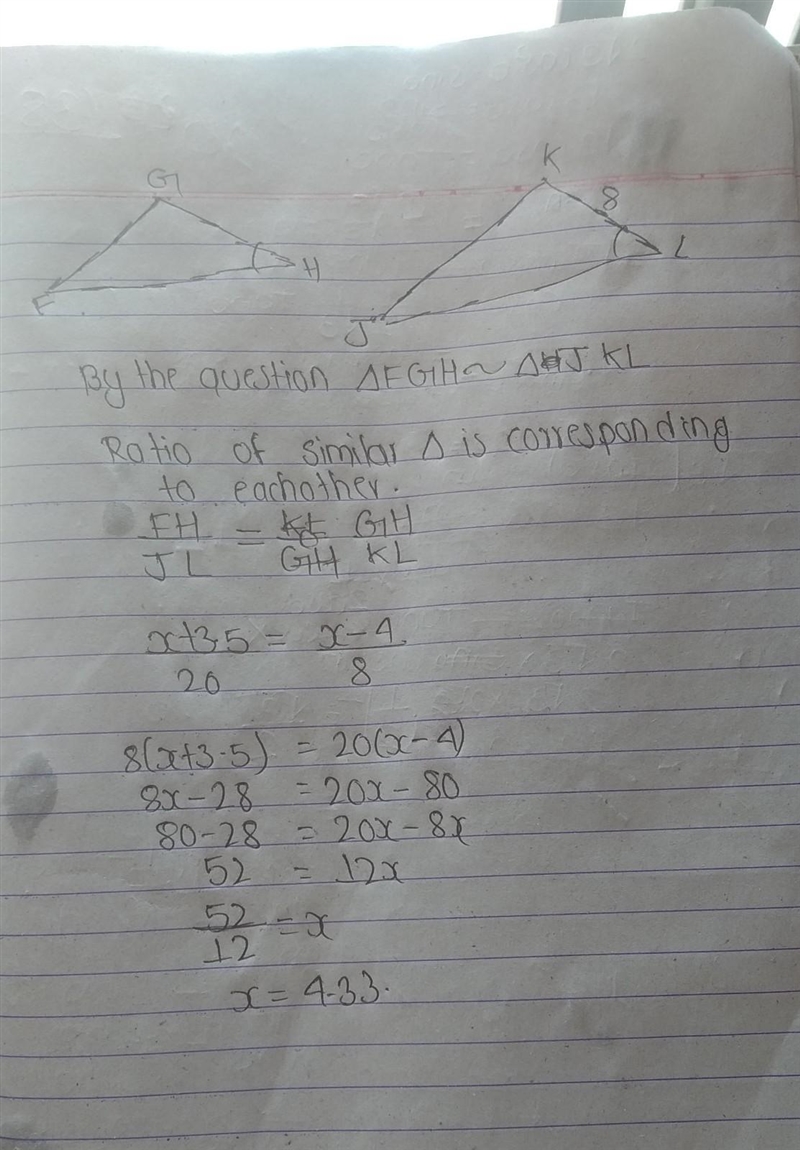 G
K
8
H
L
F
J
By the question ΔFGH ~ ΔJKL
Ratio of similar Δ is corresponding
to eachother.
FH/JL = GH/KL
x+3.5/20 = x-4/8
8(x+3.5) = 20(x-4)
8x-28 = 20x-80
80-28 = 20x-8x
52 = 12x
52/12 = x
x = 4.33.